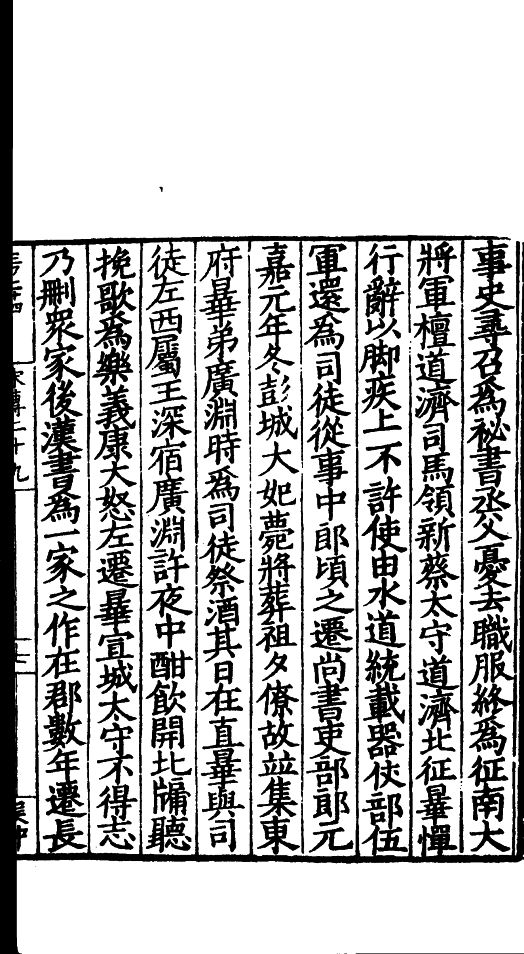 事史尋召爲祕書丞父憂去職服終爲征南大
將軍檀道濟司馬領新蔡太守道濟北征曅憚
行辭以脚疾上不許使由水道統載器仗部伍
軍還爲司徒從事中郎頃之遷尚書吏部郎元
嘉元年冬彭城大妃薨將葬祖夕僚故竝集東
府曅弟廣淵時爲司徒祭酒其日在直曅與司
徒左西屬王深宿廣淵許夜中酣飲開北牖聽
挽歌爲樂義康大怒左遷曅宣城太守不得志
乃刪衆家後漢書爲一家之作在郡數年遷長
宋傳二十九